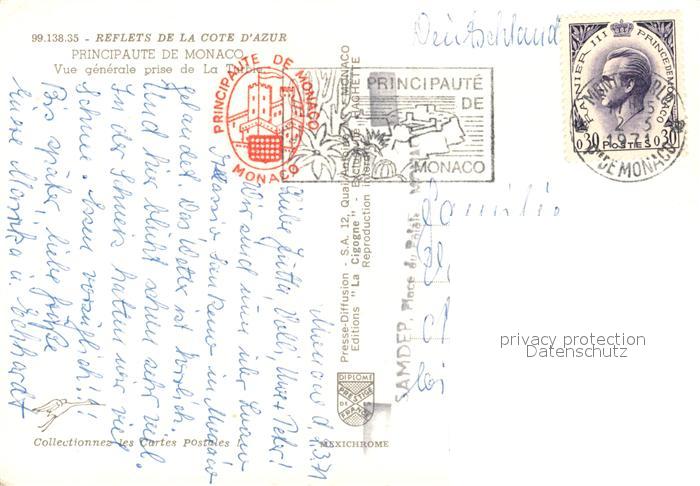 99.138.35 - REFLETS DE LA COTE D'AZUR
PRINCIPAUTE DE MONACO
Vue générale prise de La
Deutschland
PRINCIPAUTE DE MONACO
MONACO
PRINCIPAUTÉ
DE
MONACO
RAINIER III PRINCE DE MONACO
0,30 POSTES 0,30
1971
Pté DE MONACO
Monaco d.
Liebe Jutta, Uwe + Peter!
Wir sind nun über Lugano
Alassio Sanremo in Monaco
gelandet. Das Wetter ist herrlich.
Und hier blüht schon sehr viel
In der Schweiz hatten wir viel
Schnee. Essen vorzüglich!!
Bis später, liebe Grüße
Eure Monika u. Eckhardt
Presse-Diffusion - S.A. 12, Quai MONACO
Editions "La Cigogne" - HACHETTE
Reproduction
SAMDEP, Place du Palais
Familie
DIPLOME
PRESTIGE
DE
FRANCE
MEXICHROME
Collectionnez les Cartes Postales
privacy protection
Datenschutz